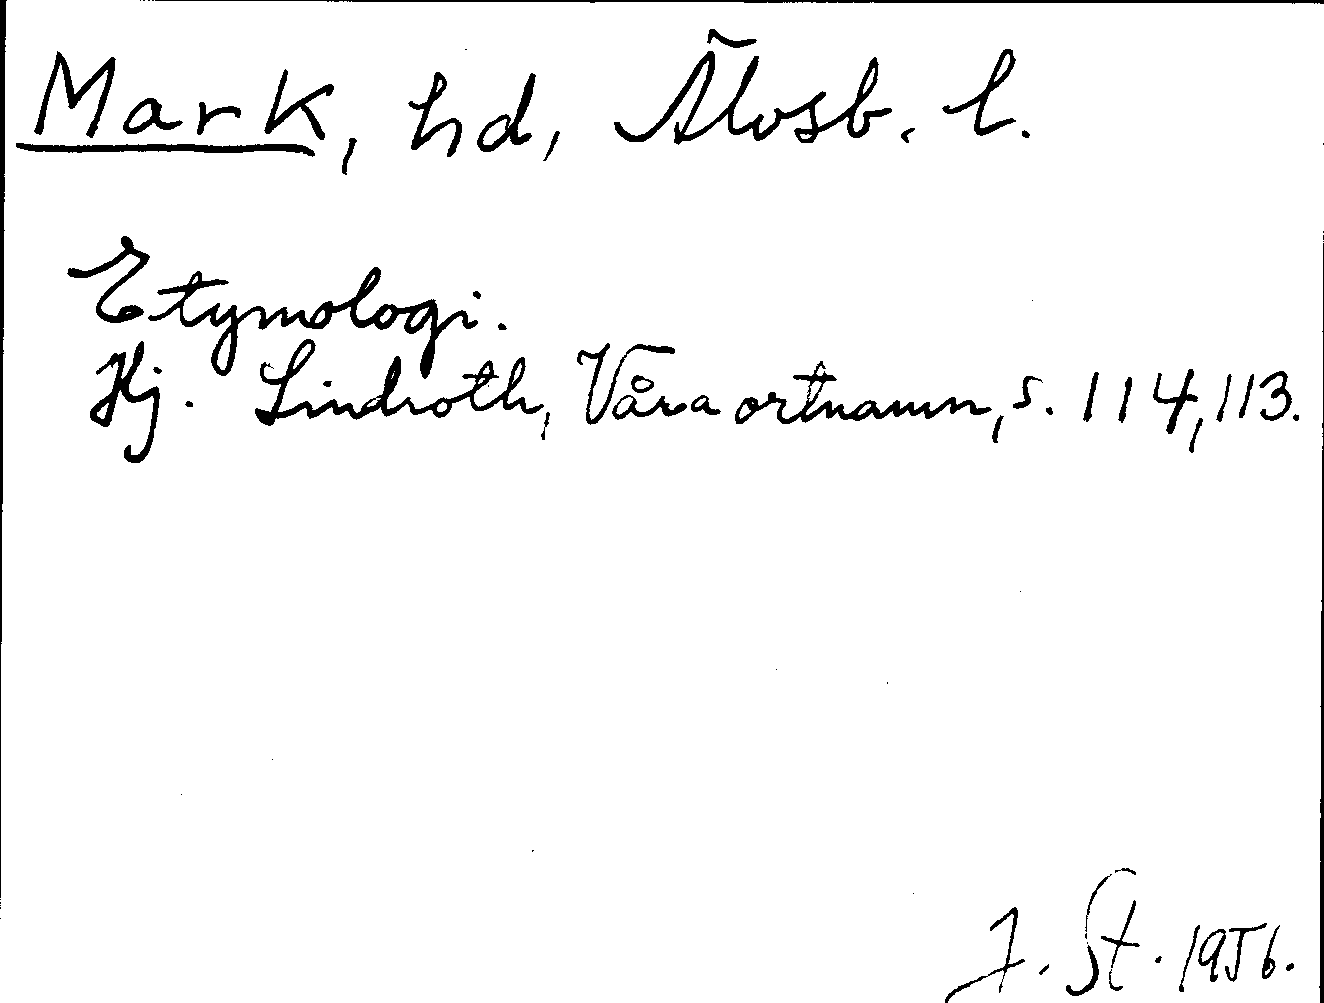 Mark, hd, Älvsb. l.
Etymologi.
Hj. Lindroth, Våra ortnamn, s. 114, 113.
J. St. 1956.